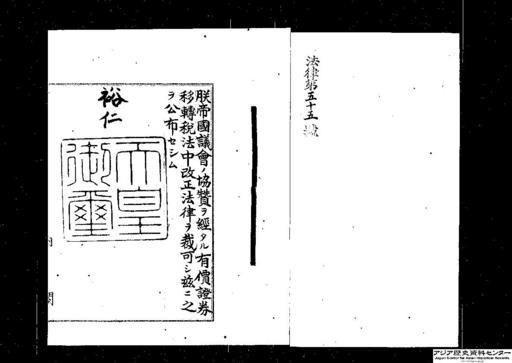 法律第五十五號
朕帝國議會ノ協贊ヲ經タル有價證券
移轉税法中改正法律ヲ裁可シ玆ニ之
ヲ公布セシム
裕仁
天皇
御璽
アジア歴史資料センター
Japan Center for Asian Historical Records